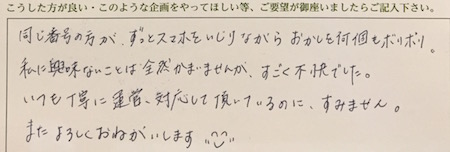 こうした方が良い・このような企画をやってほしい等、ご要望が御座いましたらご記入下さい。
同じ番号の方が、ずっとスマホをいじりながら おかしを何個もボリボリ。
私に興味ないことは全然かまいませんが、すごく不快でした。
いつも丁寧に運営、対応して頂いているのに、すみません。
またよろしくおねがいします